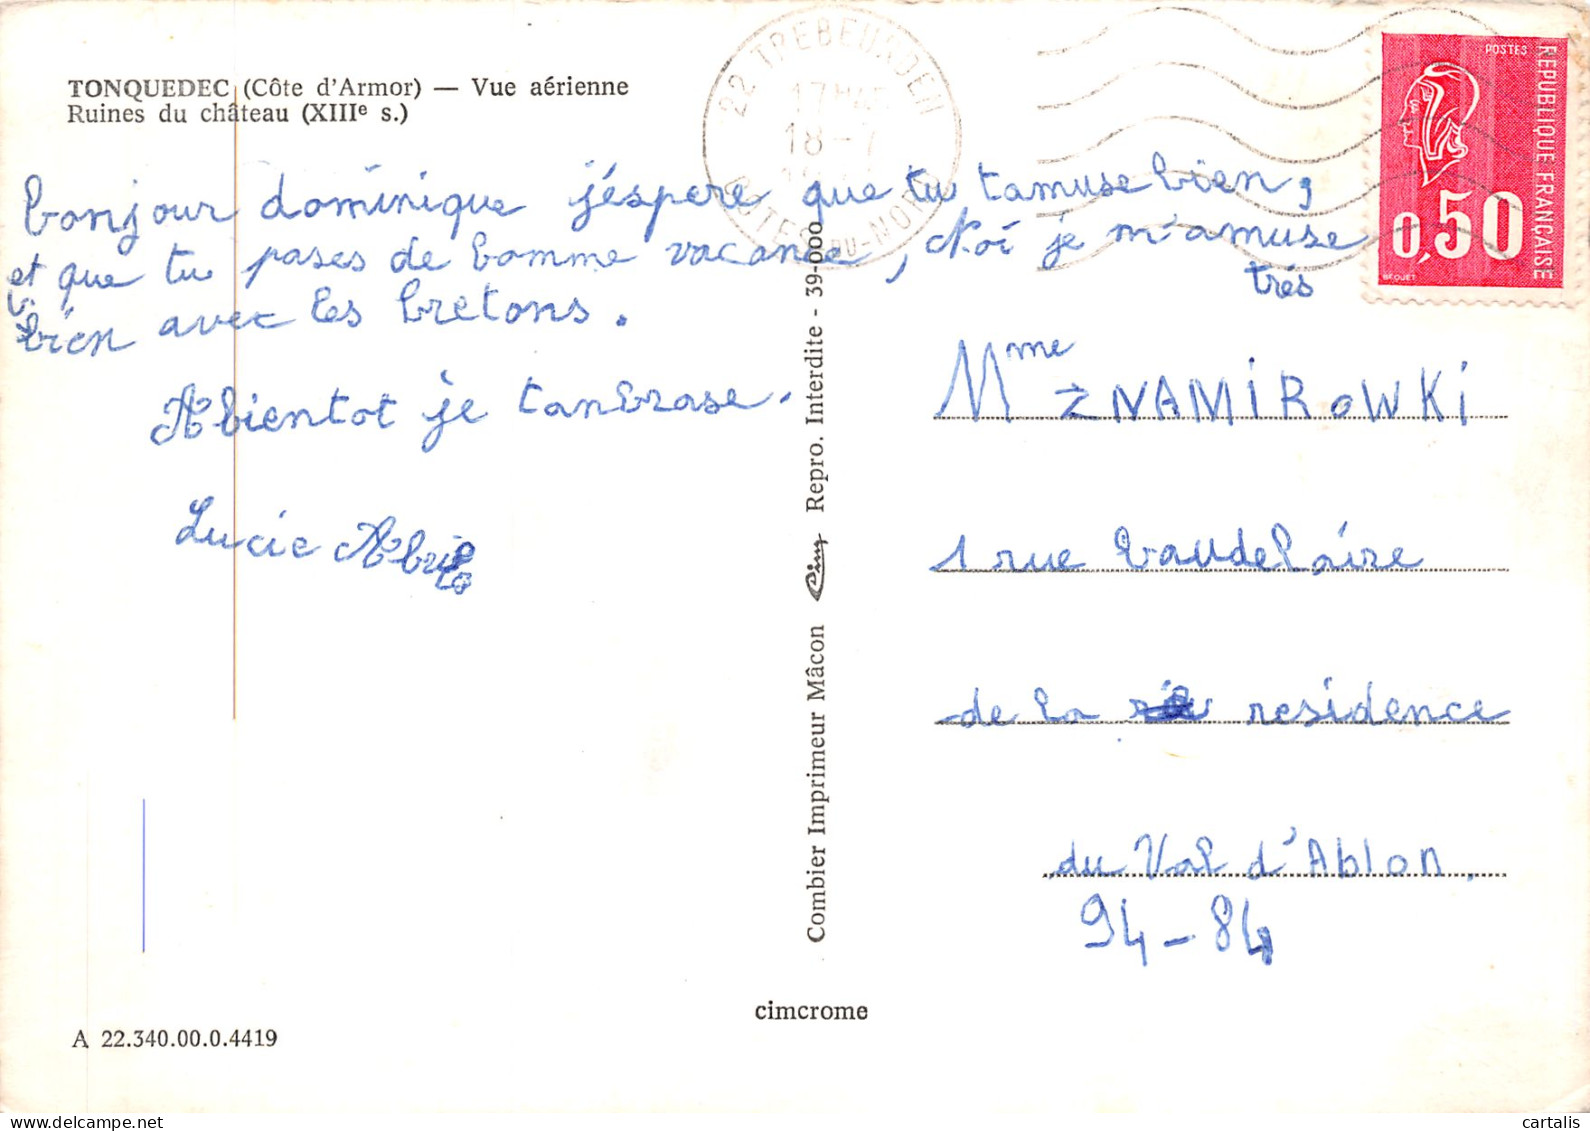 TONQUEDEC (Côte d'Armor) — Vue aérienne
Ruines du château (XIIIe s.)
bonjour dominique j'éspere que tu tamuse bien,
et que tu pases de bomme vacance, Moi je m'amuse
trés
bien avec les bretons.
Abientot je tanbrase.
Lucie
22 TREBEURDEN
18-7
COTES-DU-NORD
POSTES
REPUBLIQUE FRANÇAISE
0,50
BEQUET
Mme ZNAMIROWKI
1 rue baudelaire
de la residence
du Val d'Ablon.
94-84
Combier Imprimeur Mâcon Cim Repro. Interdite - 39-000
cimcrome
A 22.340.00.0.4419
cartalis.delcampe.net